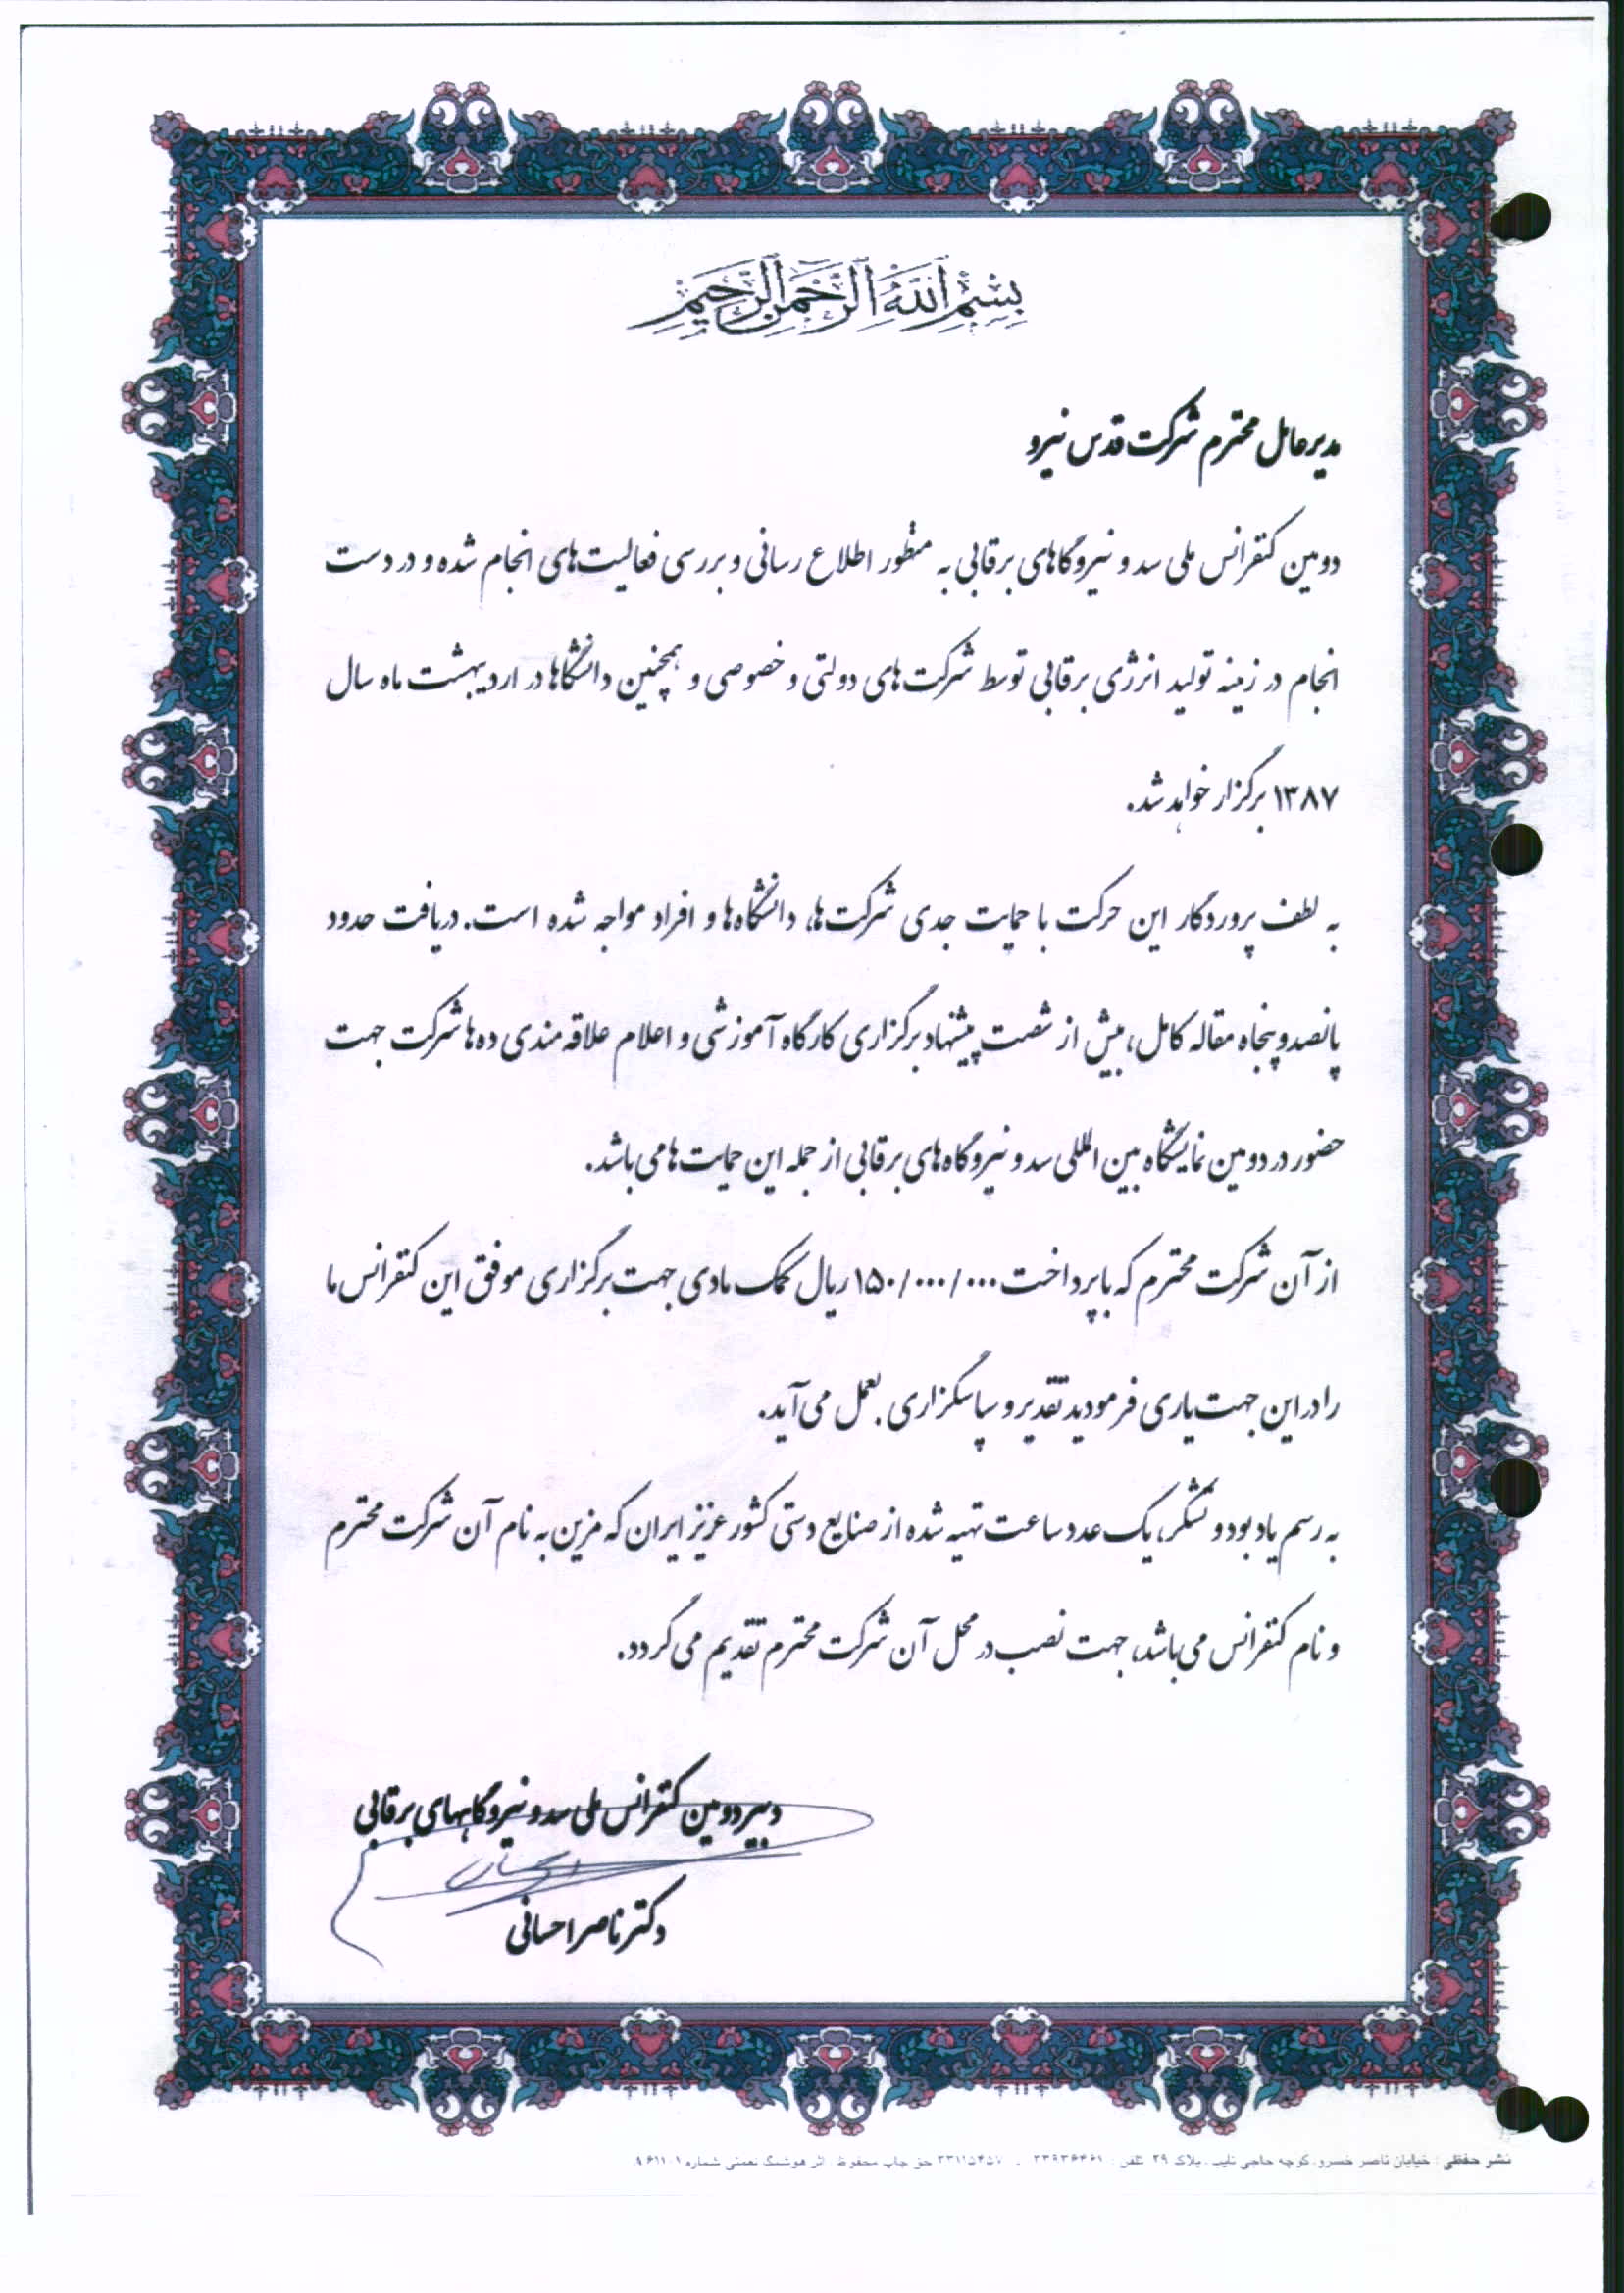 بسم الله الرحمن الرحیم
مدیرعامل محترم شرکت قدس نیرو
دومین کنفرانس ملی سد و نیروگاهای برقابی به منظور اطلاع رسانی و بررسی فعالیت‌های انجام شده و در دست
انجام در زمینه تولید انرژی برقابی توسط شرکت‌های دولتی و خصوصی و همچنین دانشگاها در اردیبهشت ماه سال
۱۳۸۷ برگزار خواهد شد.
به لطف پروردگار این حرکت با حمایت جدی شرکت‌ها، دانشگاه‌ها و افراد مواجه شده است. دریافت حدود
پانصد و پنجاه مقاله کامل، بیش از شصت پیشنهاد برگزاری کارگاه آموزشی و اعلام علاقه‌مندی ده‌ها شرکت جهت
حضور در دومین نمایشگاه بین المللی سد و نیروگاه‌های برقابی از جمله این حمایت‌ها می‌باشد.
از آن شرکت محترم که با پرداخت ۱۵۰/۰۰۰/۰۰۰ ریال کمک مادی جهت برگزاری موفق این کنفرانس ما
را در این جهت یاری فرمودید تقدیر و سپاسگزاری بعمل می‌آید.
به رسم یاد بود و تشکر، یک عدد ساعت تهیه شده از صنایع دستی کشور عزیز ایران که مزین به نام آن شرکت محترم
و نام کنفرانس می‌باشد، جهت نصب در محل آن شرکت محترم تقدیم می‌گردد.
دبیر دومین کنفرانس ملی سد و نیروگاههای برقابی
دکتر ناصر احسانی
نشر حفظی : خیابان ناصر خسرو، کوچه حاجی نایب، پلاک ۲۹ تلفن : ۳۳۹۳۶۴۶۱ - ۳۳۱۱۵۴۵۷ حق چاپ محفوظ، اثر هوشنگ نعمتی شماره